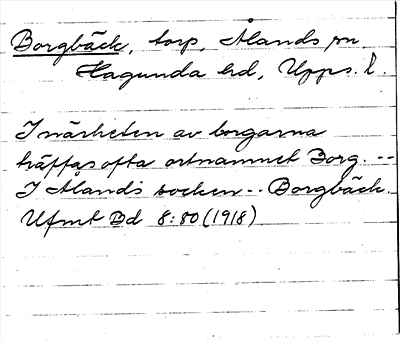 Borgbäck, torp, Ålands sn
Hagunda hd, Upps. l.
I närheten av borgarna
träffas ofta ortnamnet Borg. --
I Ålands socken -- Borgbäck.
Ufmt Bd 8:80 (1918)